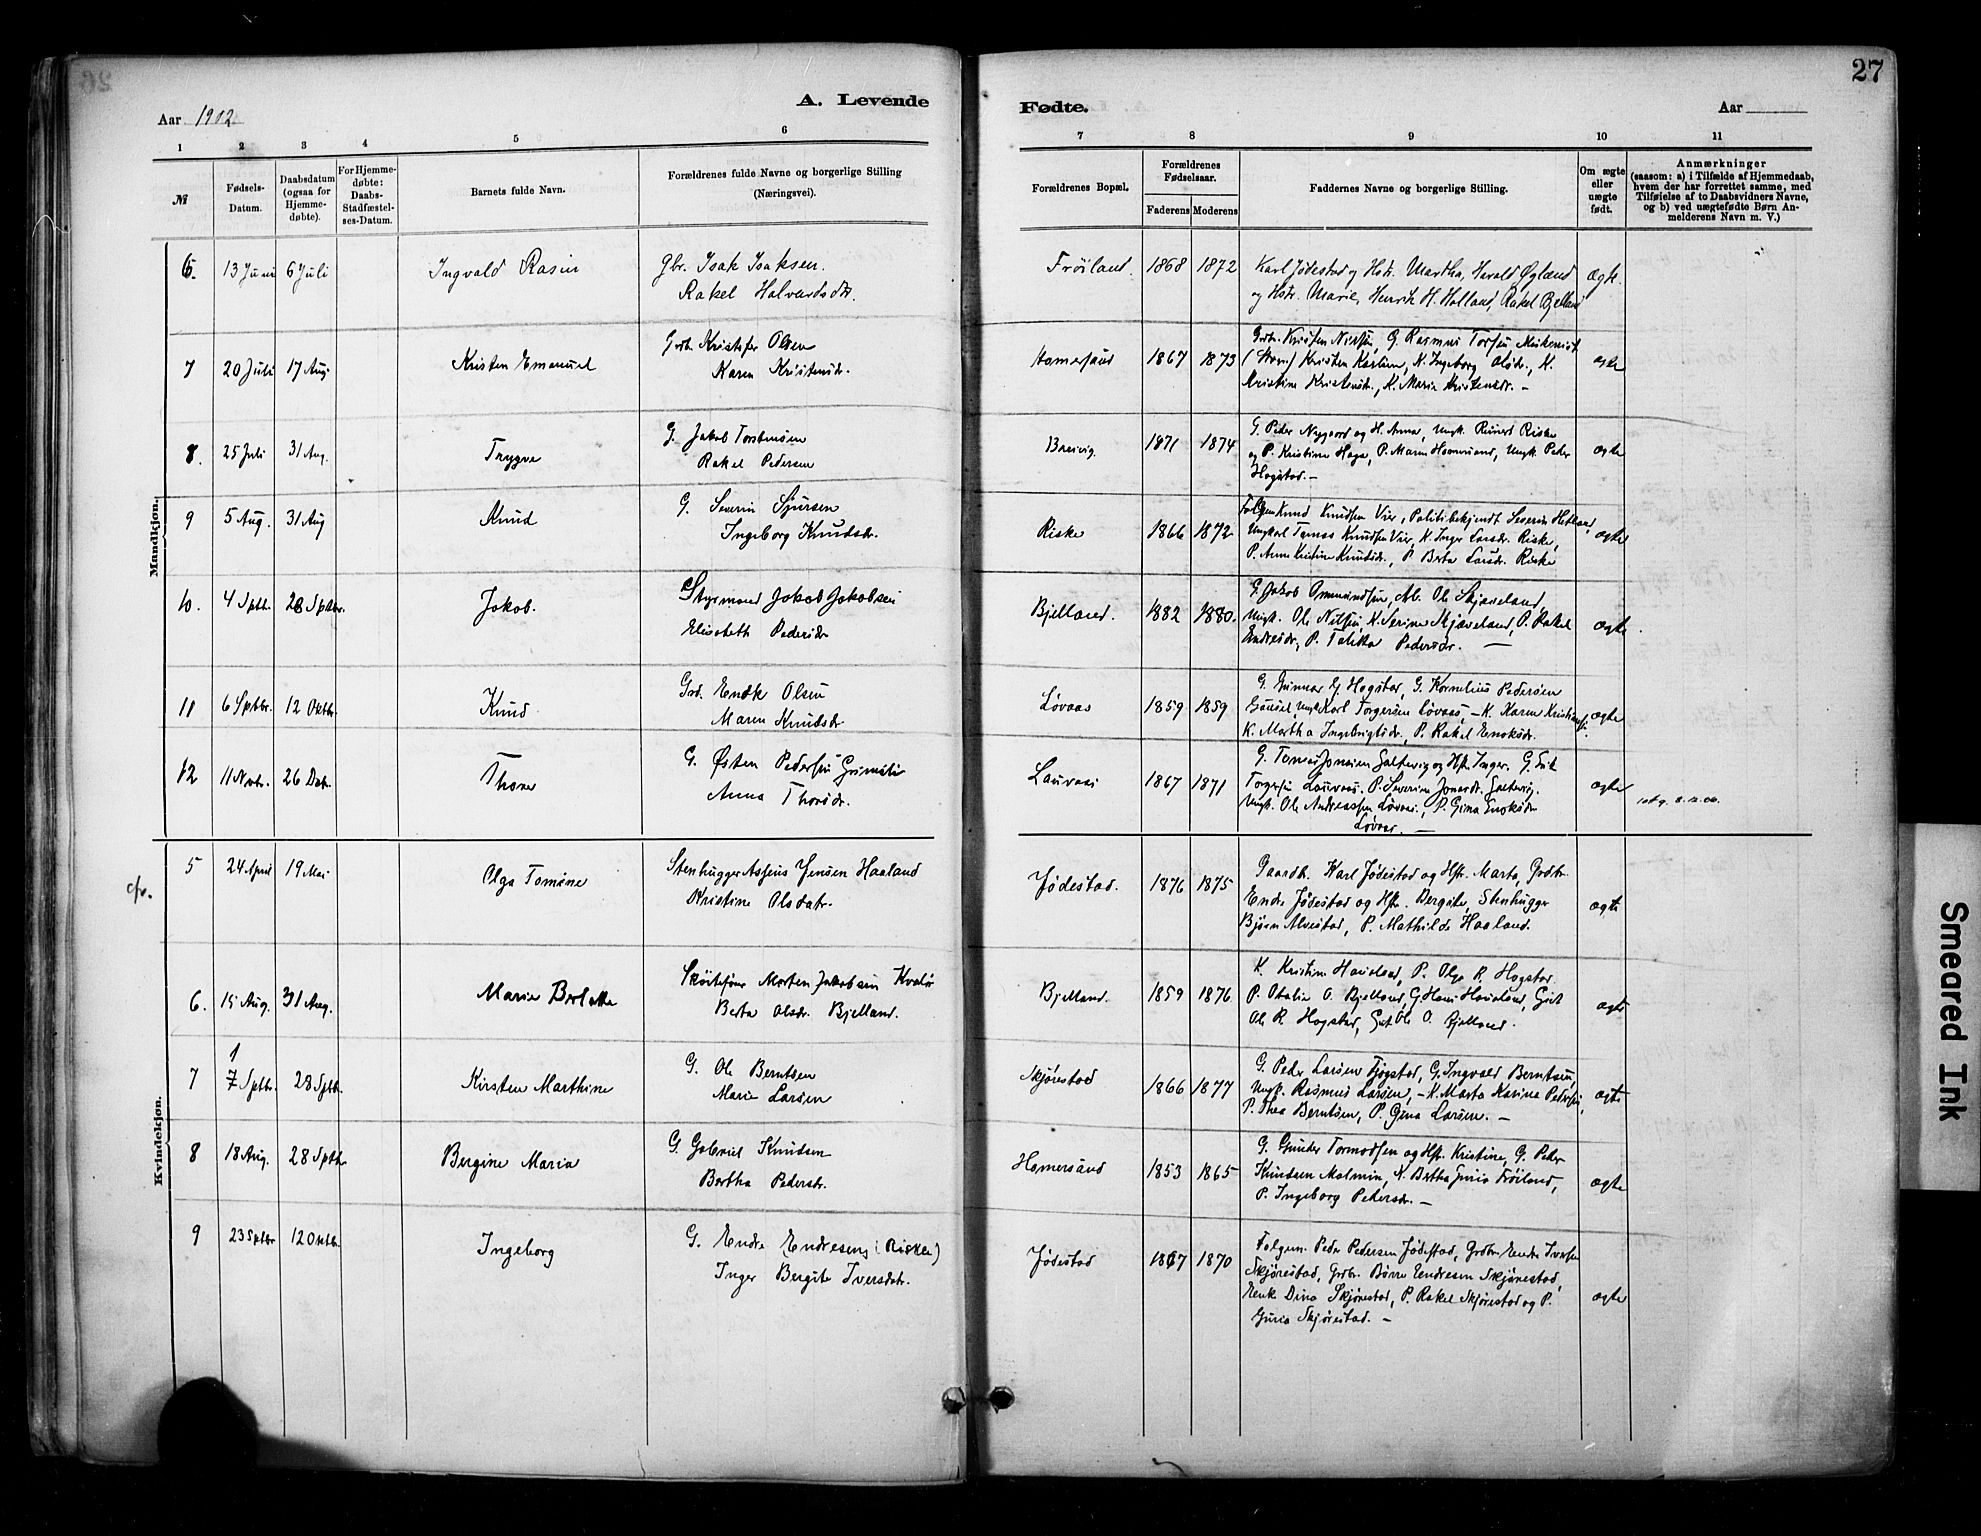 27
A. Levende
Fødte.
Aar 1902
Aar
1 2 3 4 5 6 7 8 9 10 11
№
Fødsels-
Datum.
Daabsdatum
(ogsaa for
Hjemme-
døbte).
For Hjemme-
døbte:
Daabs-
Stadfæstel-
ses-Datum.
Barnets fulde Navn.
Forældrenes fulde Navne og borgerlige Stilling
(Næringsvei).
Forældrenes Bopæl.
Forældrenes
Fødselsaar.
Faderens Moderens
Faddernes Navne og borgerlige Stilling.
Om ægte
eller
uægte
født.
Anmærkninger
(saasom: a) i Tilfælde af Hjemmedaab,
hvem der har forrettet samme, med
Tilføielse af to Daabsvidners Navne,
og b) ved uægtefødte Børn An-
melderens Navn m. V.)
Mandkjøn.
6. 13 Juni 6 Juli Ingvald Rasin
Gbr. Isak Isaksen.
Rakel Halvardsdtr.
Frøiland. 1868 1872
Karl Jødestad og Hstr. Martha, Harald Øglænd
og Hstr. Marie, Henrik H. Holland, Rakel Bjelland
ægte.
7 20 Juli 17 Aug. Kristen Emanuel
Grdb. Kristofer Olsen
Karen Kristensdr.
Hamersand 1867 1873
Grdbr. Kristen Nilsen, G. Rasmus Torsen
Kristen Karlsen, K. Ingeborg Olsdr., K.
Kristine Kristensdr., K. Maria Kristensdr. –
ægte
8. 25 Juli 31 Aug. Trygve
G. Jakob Torstensen
Rakel Pedersen
Breivig. 1871 1874
G. Peder Nygaard og H. Anna, Ungk. Reinert Riske
og P. Kristine Hage, P. Maren Hammersand, Ungk. Peder
Hogstad. –
ægte
9 5 Aug. 31 Aug Knud
G. Severin Sjursen
Ingeborg Knudsdr.
Riske 1866 1872
Folgem Knud Knudsen Vier, Politibetjendt Severin Hetland,
Ungkarl Tomas Knudsen Vier, K. Inger Larsdr. Riske,
P. Anne Kristine Knudsdr., P. Berta Larsdr. Riske
ægte
10. 4 Sptb. 28 Sptbr. Jakob.
Styrmand Jakob Jakobsen
Elisabeth Pedersdr
Bjelland. 1882 1880.
G. Jakob Ommundsen, Ab. Ole Skjæveland,
Ungk. Ole Nilsen, K. Serine Skjæveland, P. Rakel
Endresdr, P. Talette Pedersdr. —
ægte.
11 6 Sptbr. 12 Oktbr. Knud
Grd. Enok Olsen
Maren Knudsdr.
Løvaas 1859 1859
G. Gunnar G. Hogstad, G. Kornelius Pedersen
Gausel, Ungk Karl Torgersen Løvaas, – K. Karen Kristiansen
K. Martha Ingebrigtsdr., P. Rakel Enoksdr.
ægte
12 11 Novbr. 26 Dcb. Thora
G. Østen Pedersen Grimsli
Anna Thorsdr.
Lauvaas 1867 1871
G. Tomas Jonsen Galtevig og Hst. Inger. G. Erik
Torgersen Lauvaas. P. Severine Jonasdr. Galtevig.
Ungk. Ole Andreassen Løvaas, P. Gina Enoksdr
Løvaas. —
ægte
Kvindekjøn.
cfr.
5 24 April 19 Mai Olga Tomine
Stenhugger Asseus Jensen Haaland
Kristine Olsdatr.
Jødestad. 1876 1875
Gaardb. Karl Jødestad og Hst. Marta, Grdbr.
Endre Jødestad og Hst. Bergite, Stenhugger
Bjørn Alvestad, P. Mathilde Haaland.
ægte
6. 15 Aug. 31 Aug. Marie Berlette
Skøiteføre Morten Jakobsen Kvalø
Berta Olsdr. Bjelland.
Bjelland. 1859 1876
K. Kristine Haueland, P. Olga R. Hogstad
P. Otalie O. Bjelland, G Hans Haueland, Gut
Ole R. Hogstad, Gut Ole O. Bjelland.
ægte
7 1
7 Sptb. 28 Sptb. Kirsten Marthine
G. Ole Berntsen
Marie Larsen
Skjørestad 1866 1877
G. Peder Larsen Fjogstad, G. Ingvald Berntsen,
Ungk. Rasmus Larsen, – K. Marta Karina Pedersen,
P. Thea Berntsen, P. Gina Larsen. –
ægte
8 18 Aug. 28 Sptb. Bergine Maria
G. Gabriel Knudsen
Bertha Pedersdr.
Hamersand 1853 1865
G. Gunder Tormodsen og Hst. Kristine, G. Peder
Knudsen Malmin, K. Bertha Guria Frøiland,
P. Ingeborg Pedersdr. –
ægte
9 23 Sptbr 12 Oktbr. Ingeborg
G. Endre Endresen (Riske)
Inger Bergite Iversdatr.
Jødestad 1867 1870
Folgem. Peder Pedersen Jødestad, Grdbr Endre Iversen
Skjørestad, Grdbr. Børre Endresen Skjørestad,
Enke Dina Skjørestad, P. Rakel Skjørestad og P.
Guria Skjørestad. –
ægte
Smeared Ink